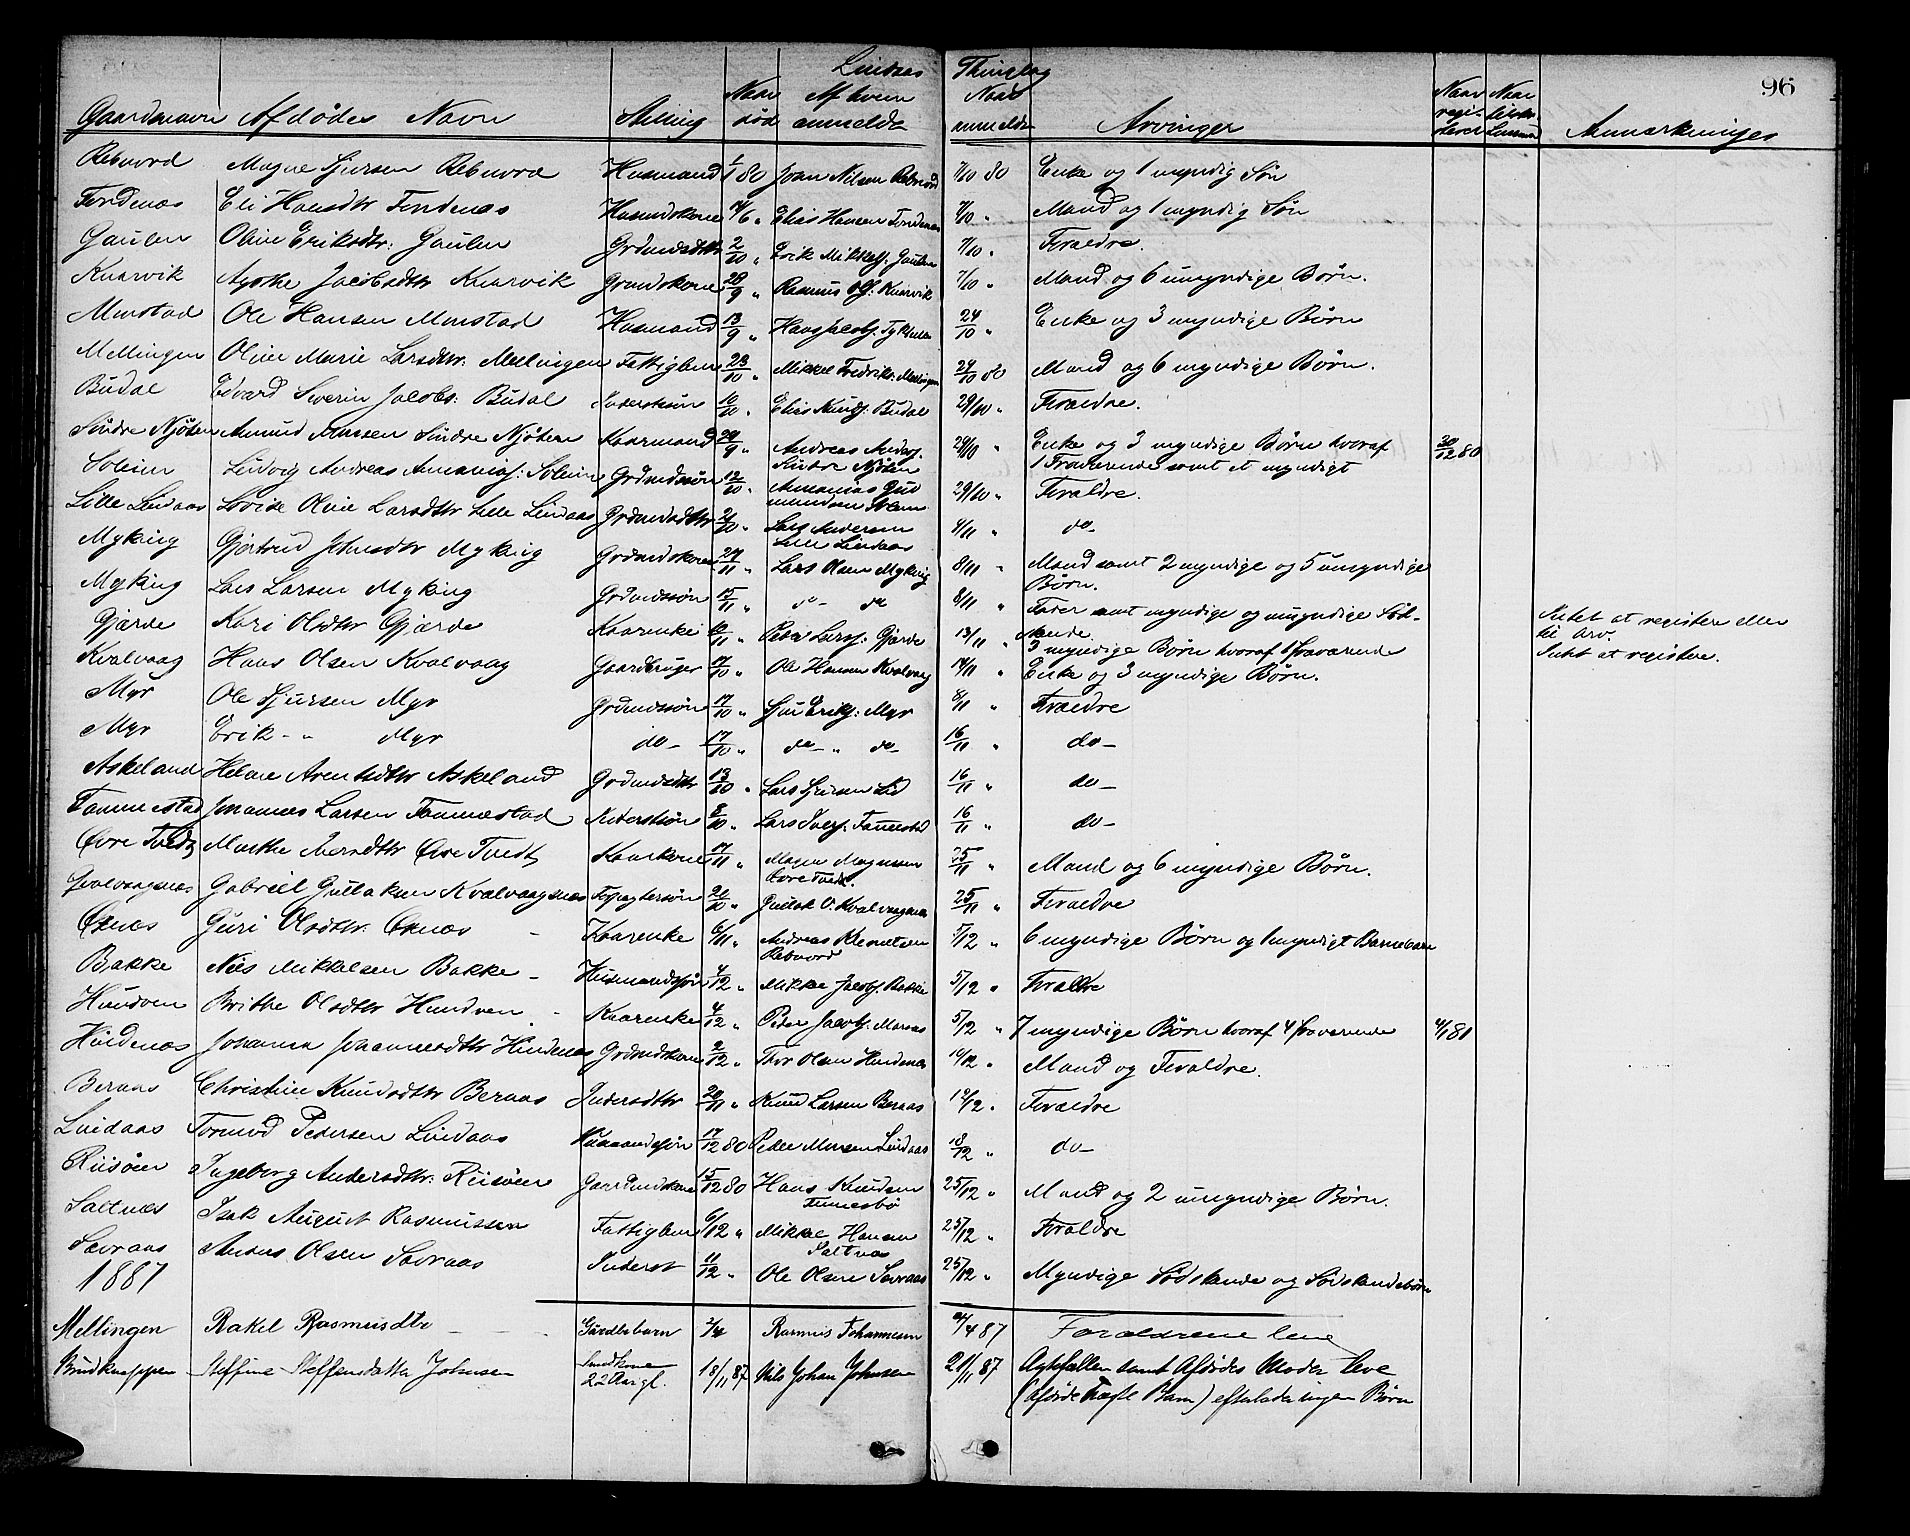 Lindaas Thinglag
96
Gaardsnavn Afdødes Navn Stilling Naar død Af hvem anmeldt Naar anmeldt Arvinger Naar regi-steret Naar Anmærkninger
Rebnord Mogne Sjursen Rebnord Husmand 80 Joan Nilsen Rebnord 7/10 80 Enke og 1 myndig Søn
Fondenæs Eli Hansdtr Fondenæs Husmdskone 14/6 " Elias Hansen Fondenæs 7/10 " Mand og 1 myndig Søn
Gaulen Oline Eriksdtr: Gaulen Grdmdsdtr 2/10 " Erik Mikkels: Gaulen 7/10 " Forældre.
Knarvik Agathe Jacobsdtr Knarvik Grdmdskone 28/9 " Rasmus Ols: Knarvik 7/10 " Mand og 6 umyndige Børn.
Monstad Ole Hansen Monstad Husmand 13/9 " Hans Jacobs: 24/10 " Enke og 3 myndige Børn
Mellingen Oline Marie Larsdtr: Mellingen Fattiglem 23/10 " Mikkel Fredriks: Mellingen 24/10 do Mand og 6 myndige Børn.
Budal Edvard Severin Jacobs: Budal Inderstsøn 10/10 " Elias Knuds: Budal 29/10 " Forældre.
Sindre Njøten Amund Monsen Sindre Njøten Kaarmand 29/9 " Andreas Anders: Sindre Njøten 29/10 " Enke og 3 myndige Børn hvoraf 30/12 80
1 Fraværende samt et myndigt
Soleim Ludvig Andreas Ananias: Soleim Grdmdssøn 12/10 " Ananias Gudmundsen Soleim 29/10 " Forældre.
Lille Lindaas Lovise Oline Larsdtr Lille Lindaas Grdmdsdtr 21/10 " Lars Andersen Lille Lindaas 4/11 " do
Myking Gjertrud Johnsdtr Myking Grdmdskone 27/11 " Lars Olsen Myking 8/11 " Mand samt 2 myndige og 5 umyndige
Børn.
Myking Lars Larsen Myking Grdmdssøn 15/11 " do do 8/11 " Fader samt myndige og umyndige Sød-
skende.
Gjærde Kari Olsdtr Gjærde Kaarenke 10/11 " Peder Lars: Gjærde 13/11 " 3 myndige Børn hvoraf 1 fraværende Intet at registere eller
til Arv.
Kvalvaag Hans Olsen Kvalvaag Gaardbruger 17/10 " Ole Hansen Kvalvaag 14/11 " Enke og 3 myndige Børn. Intet at registere.
Myr Ole Sjursen Myr Grdmdssøn 17/10 " Sjur Eriks: Myr 8/11 " Forældre
Myr Erik " Myr do 17/10 " do " do 16/11 " do
Askeland Helene Arentsdtr Askeland Grdmdsdtr 13/10 " Lars Sjursen Lid 16/11 " do
Fammestad Johannes Larsen Fammestad Inderstsøn 8/10 " Lars Ivers: Fammestad 16/11 " do
Øvre Tvedt Marthe Iversdtr Øvre Tvedt Kaarkone 17/11 " Mogne Mognesen Øvre Tvedt. 25/11 " Mand og 6 myndige Børn.
Kvalvaagsnæs Gabriel Gullaksen Kvalvaagsnæs Forpagtersøn 21/10 " Gullak O. Kvalvaagsnæs 25/11 " Forældre
Oxnæs Guri Olsdtr. Oxnæs Kaarenke 6/11 " Andreas Klemetsen Rebnord 5/12 " 6 myndige Børn og 1 myndigt Barnebarn
Bakke Nils Mikkelsen Bakke Husmandssøn 4/12 " Mikkel Jacobs: Bakke 5/12 " Forældre
Hundven Brithe Olsdtr Hundven Kaarenke 4/12 " Peder Jacobs: 5/12 " 7 myndige Børn hvoraf 4 fraværende 4/1 81
Hindenæs Johanna Johannesdtr Hindenæs Grdmdskone 2/12 " Thor Olsen Hindenæs 10/12 " Mand og Forældre.
Beraas Christine Knudsdtr Beraas Inderstdtr 20/11 " Knud Larsen Beraas 12/12 " Forældre
Lindaas Tormod Pedersen Lindaas Husmandssøn 17/12 80 Peder Monsen Lindaas 18/12 " do
Riisøen Ingeborg Andersdtr: Riisøen Gaardmdskone 15/12 80 Hans Knudsen 25/12 " Mand og 2 umyndige Børn.
Saltnæs Isak August Rasmussen Fattiglem 6/12 " Mikkel Hansen Saltnæs 25/12 " Forældre
Sævraas Anders Olsen Sævraas Inderst 11/12 " Ole Olsen Sævraas 25/12 " Myndige Sødskende og Sødskendebørn
1887
Mellingen Rakel Rasmusdtr Gårdbrbarn 2/4 Rasmus Johannesen 4/4 87 Forældrene leve
Brudknappen Steffine Steffensdatter Johnsen Smedkone 22 Aar gl. 18/11 87 Nils Johan Johnsen 21/11 87 Ægtefællen samt Afdødes Moder leve
(Afdøde uægte Barn) efterlader ingen Børn